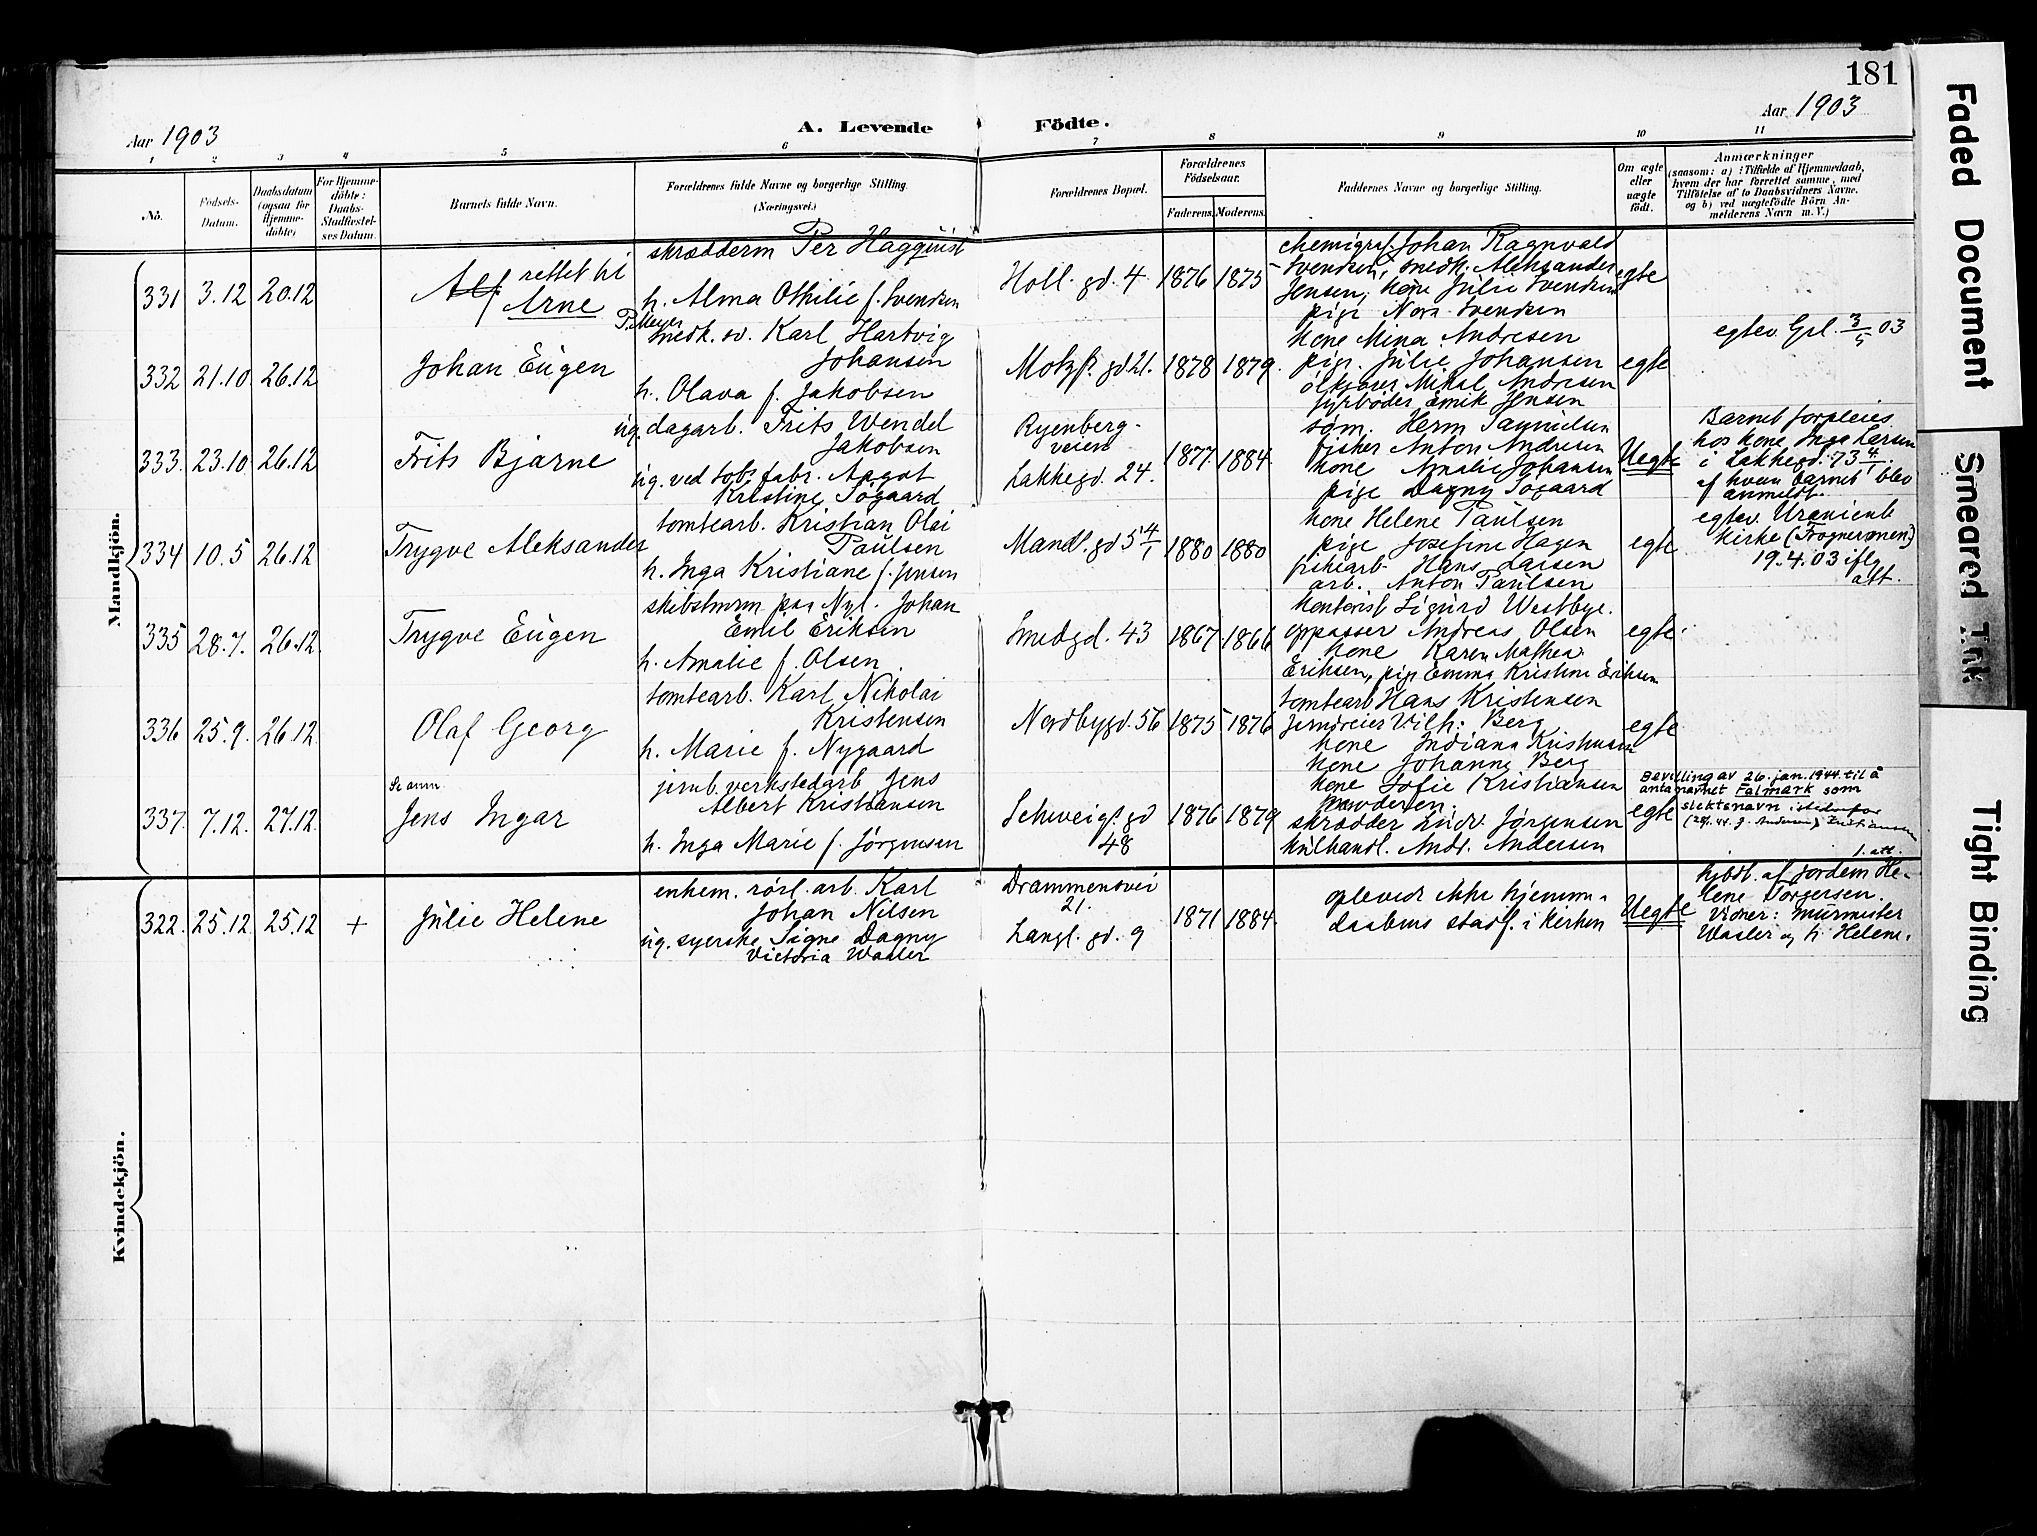 181
Aar 1903
A. Levende Födte.
Aar 1903
1 2 3 4 5 6 7 8 9 10 11
No.
Födsels-Datum.
Daabsdatum (ogsaa for Hjemme-döbte)
For Hjemme-döbte: Daabs-Stadfæstel-ses Datum.
Barnets fulde Navn.
Forældrenes fulde Navne og borgerlige Stilling.
(Næringsvei.)
Forældrenes Bopæl.
Forældrenes Födselsaar.
Faderens. Moderens.
Faddernes Navne og borgerlige Stilling.
Om ægte eller uægte födt.
Anmærkninger
(saasom: a) i Tilfælde af Hjemmedaab,
hvem der har forrettet samme, med
Tilföielse af to Daabsvidners Navne,
og b) ved uægtefödte Börn An-
melderens Navn m. V.)
Mandkjön.
331 3.12 20.12
Alf rettet til
Arne
skrædderm Per Hagquist
h. Alma Othilie f. Svendsen
Holl. gd. 4 1876 1875
chemigraf. Johan Ragnvald
Svendsen, snedk. Aleksander
Jensen, kone Julie Svendsen
pige Nora Svendsen
egte
332 21.10 26.12
Johan Eugen
snedk. sv. Karl Hartvig
Johansen
h. Olava f. Jakobsen
Motzf. gd 21. 1878 1879.
kone Mina Andresen
pig. Julie Johansen
ölkjører Mikal Andresen
fyrböder Emik Jensen
egte
egtev. Grl. 3/5 03
333. 23.10 26.12
Frits Bjarne
ug. dagarb. Frits Wendel
Jakobsen
ug. ved tobsfabr. Aagot
Kristine Sögaard
Ryenberg-
veien
Lakkegd. 24. 1877. 1884.
söm. Herm
fisker Anton Andresen
kone Amalie Johansen
pige Dagny Sogaard
Uegte
Barnet forpleies
hos kone Inga Larsen
i Lakkegd. 73 4/1.
af hvem barnet blev
anmeldt.
334 10.5 26.12
Trygve Aleksander
tomtearb. Kristian Olai
Paulsen
h. Inga Kristiane f. Jensen
Mandl. gd 5 4/1 1880 1880
kone Helene Paulsen
pige Josefine Hagen
Hans Larsen
arb. Anton Paulsen
egte
egtev. Uranienb
kirke (Frogneremen)
19.4.03 iflg
att.
335 28.7. 26.12
Trygve Eugen
Johan
Emil Eriksen
h. Amalie f. Olsen
Smedgd. 43 1867 1866
kontorist Sigurd Westbye.
oppasser Andreas Olsen
kone Karen Mathea
Eriksen, pige Emma Kristine Eriksen
egte
336 25.9. 26.12
Olaf Georg
tomtearb. Karl Nikolai
Kristensen
h. Marie f. Nygaard
Nordbygd. 56 1875 1876
tomtearb Hans Kristensen
jerndreier Vilh. Berg
kone Indiana Kristensen
kone Johanne Berg
egte
337. 7.12. 27.12
Jens Ingar
jernb. verkstedarb Jens
Albert Kristiansen
h. Inga Marie f. Jørgensen
Schweig. gd
48
1876 1879
kone Sofie Kristiansen
moderen.
skrædder Ludv. Jørgensen
kulhandl. Andr. Andersen
egte
Bevilling av 26. jan. 1944 til å
anta navnet Falmark som
slektsnavn istedenfor
Kristiansen
1. att.
Kvindekjön.
322. 25.12 25.12 +
Julie Helene
enkem. rörl. arb. Karl
Johan Nilsen
ug. syerske Signe Dagny
Victoria Waaler
Drammensvei
21.
Langl. gd. 9
1871 1884.
oplevede ikke hjemme-
daabens stadf. i kirken
Uegte
hjdbt. af jordem He-
lene Torgersen.
Vidner: murmester
Waaler og h. Helene.
Faded Document
Smeared Ink
Tight Binding